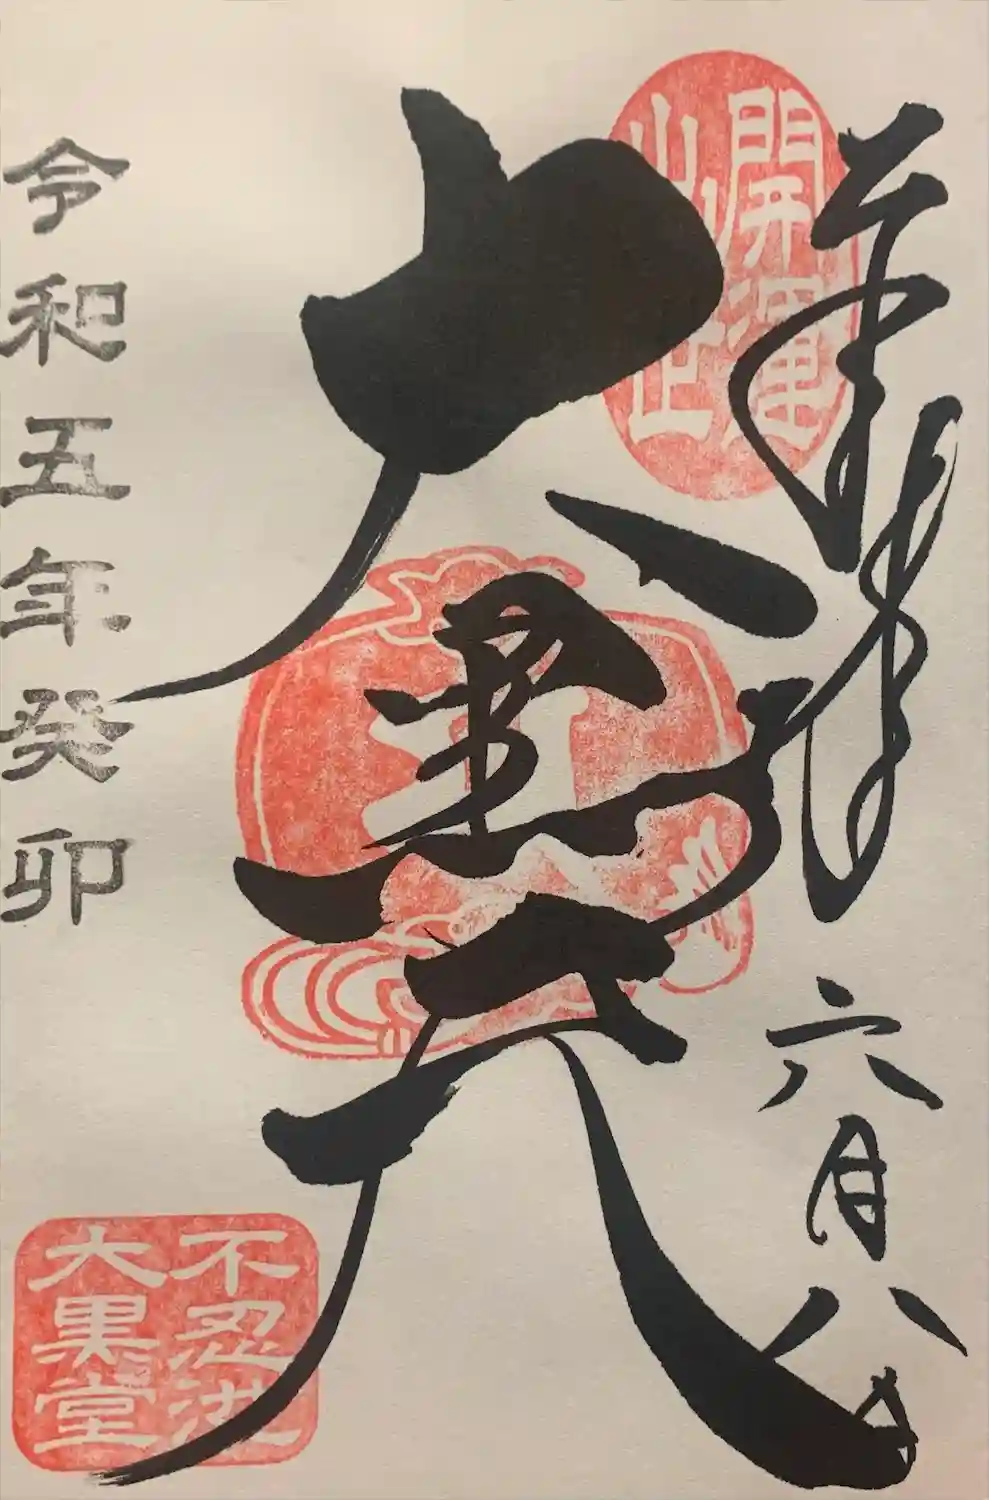 奉拝
六月八日
開運
出世
大黒天
不忍池
大黒堂
令和五年癸卯